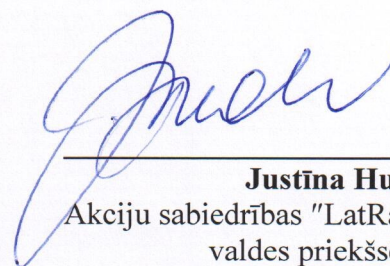 Justīna Hu
Akciju sabiedrības "LatRa
valdes priekšs